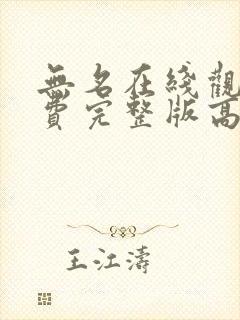 無名在綫觀
費完整版高
王江濤